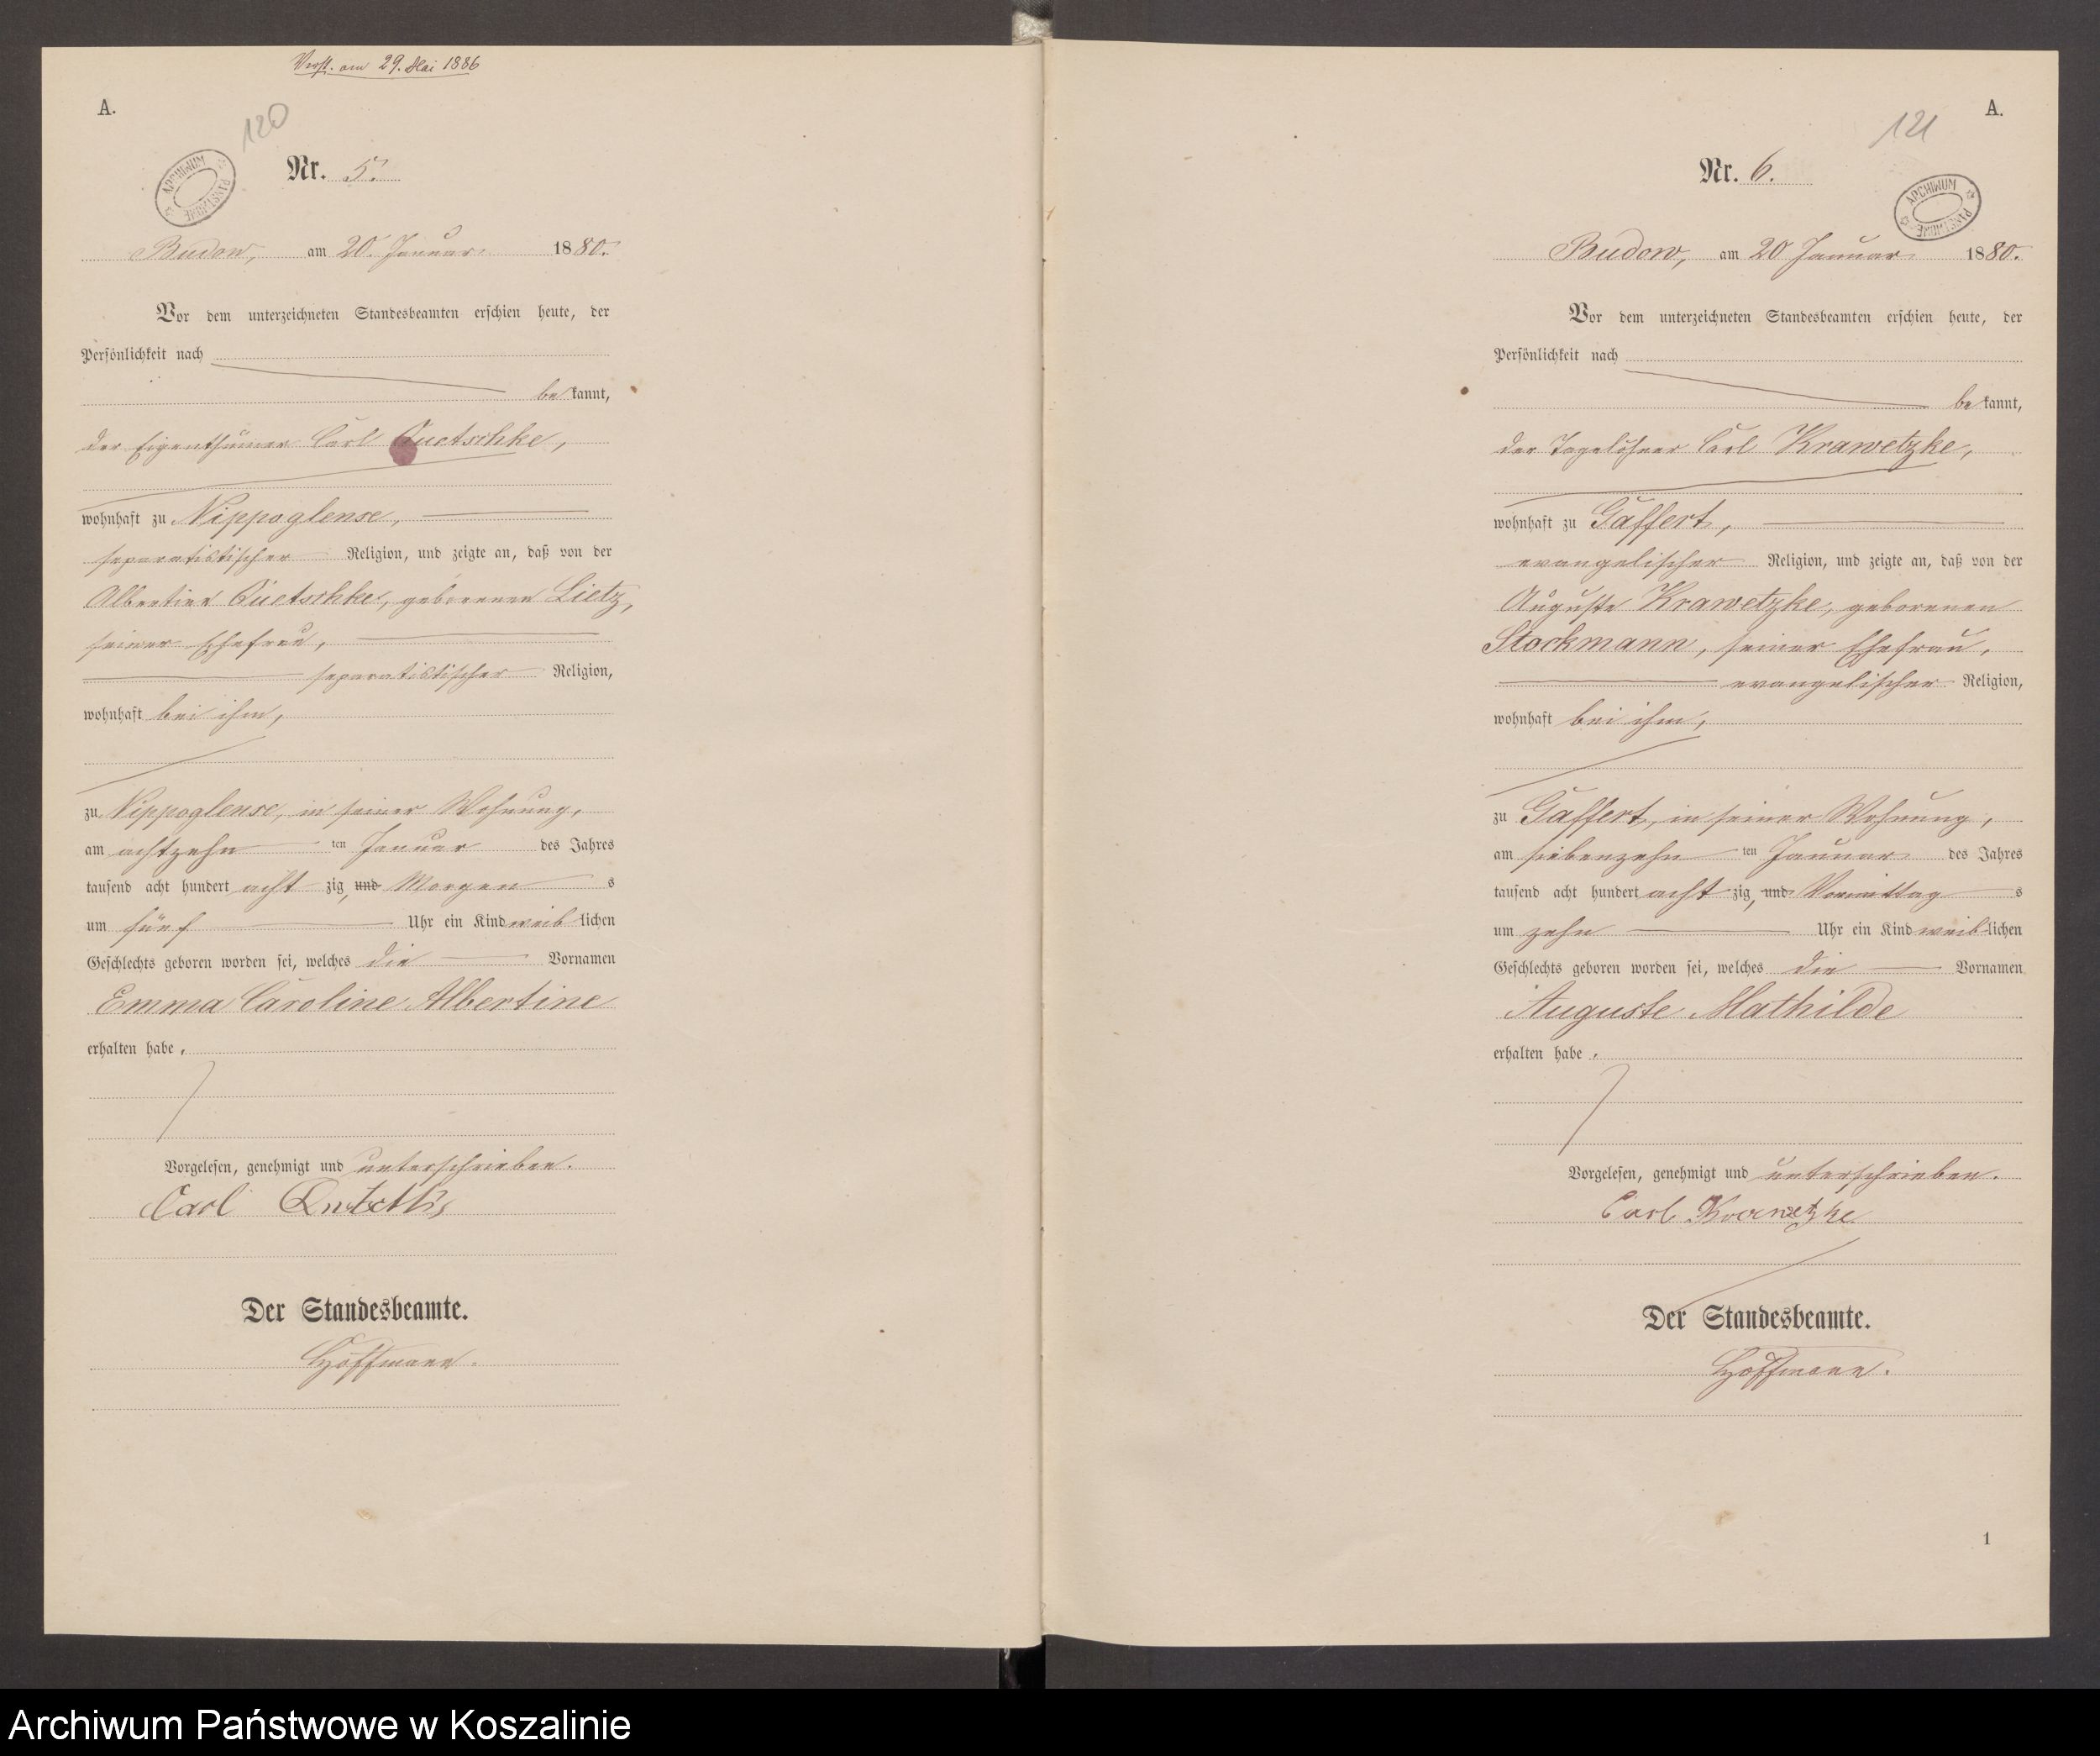 Verst. am 29. Mai 1886
A.
120
ARCHIWUM PAŃSTWOWE
Nr. 5.
Budow, am 20. Januar 1880.
Vor dem unterzeichneten Standesbeamten erschien heute, der
Persönlichkeit nach
be kannt,
der Eigenthümer Carl Quetschke,
wohnhaft zu Nippoglense,
separatistischer Religion, und zeigte an, daß von der
Albertine Quetschke, geborenen Lietz,
seiner Ehefrau,
separatistischer Religion,
wohnhaft bei ihm,
zu Nippoglense, in seiner Wohnung,
am achtzehn ten Januar des Jahres
tausend acht hundert acht zig, und Morgen s
um fünf Uhr ein Kind weib lichen
Geschlechts geboren worden sei, welches die Vornamen
Emma Caroline Albertine
erhalten habe.
Vorgelesen, genehmigt und unterschrieben.
Carl
Der Standesbeamte.
Hoffmann.
A.
121
ARCHIWUM PAŃSTWOWE
Nr. 6.
Budow, am 20 Januar 1880.
Vor dem unterzeichneten Standesbeamten erschien heute, der
Persönlichkeit nach
be kannt,
der Tagelöhner Carl Krawetzke,
wohnhaft zu Gaffert,
evangelischer Religion, und zeigte an, daß von der
Auguste Krawetzke, geborenen
Stockmann, seiner Ehefrau,
evangelischer Religion,
wohnhaft bei ihm,
zu Gaffert, in seiner Wohnung,
am siebenzehn ten Januar des Jahres
tausend acht hundert acht zig, und Vormittag s
um zehn Uhr ein Kind weib lichen
Geschlechts geboren worden sei, welches die Vornamen
Auguste Mathilde
erhalten habe.
Vorgelesen, genehmigt und unterschrieben.
Carl Krawetzke
Der Standesbeamte.
Hoffmann.
1
Archiwum Państwowe w Koszalinie